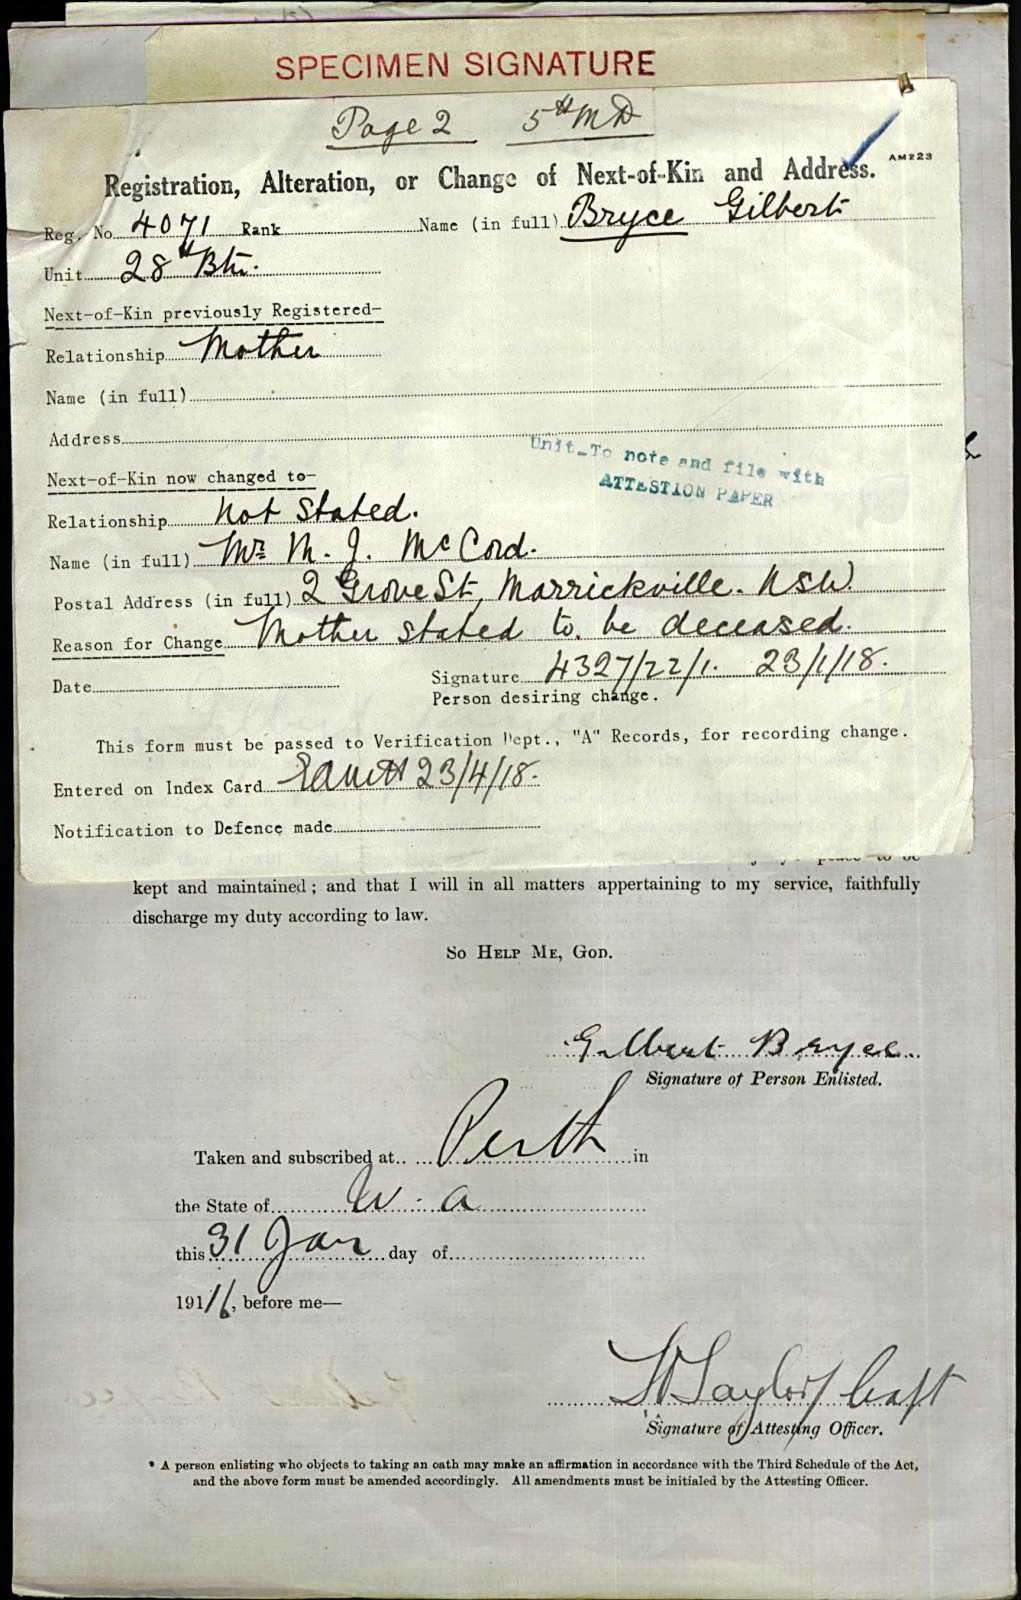 SPECIMEN SIGNATURE
Page 2 5th MD
AM223
Registration, Alteration, or Change of Next-of-Kin and Address.
Reg. No. 4071 Rank Name (in full) Bryce Gilbert
Unit 28th Btn.
Next-of-Kin previously Registered-
Relationship Mother
Name (in full)
Address
Unit-To note and file with
ATTESTION PAPER
Next-of-Kin now changed to-
Relationship Not Stated.
Name (in full) Mr M. J. McCord.
Postal Address (in full) 2 Grove St, Marrickville. NSW.
Reason for Change Mother stated to be deceased.
Date Signature 4327/22/1. 23/1/18.
Person desiring change.
This form must be passed to Verification Dept., "A" Records, for recording change.
Entered on Index Card 23/4/18.
Notification to Defence made
kept and maintained; and that I will in all matters appertaining to my service, faithfully
discharge my duty according to law.
So Help Me, God.
Gilbert Bryce
Signature of Person Enlisted.
Taken and subscribed at Perth in
the State of W.A
this 31 Jan day of
1916, before me—
Taylor Capt
Signature of Attesting Officer.
* A person enlisting who objects to taking an oath may make an affirmation in accordance with the Third Schedule of the Act,
and the above form must be amended accordingly. All amendments must be initialed by the Attesting Officer.